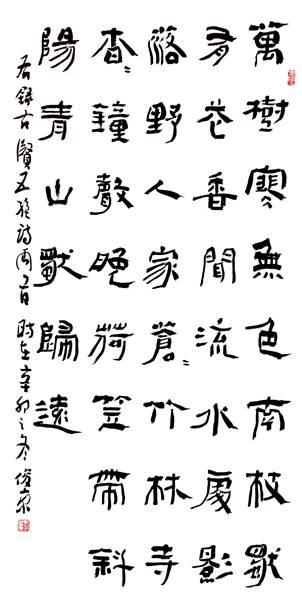 萬樹寒無色南枝獨
有花香聞流水處影
落野人家蒼〻竹林寺
杳〻鐘聲晚荷笠帶斜
陽青山獨歸遠
右錄古賢五絕詩兩首 時在辛卯之冬